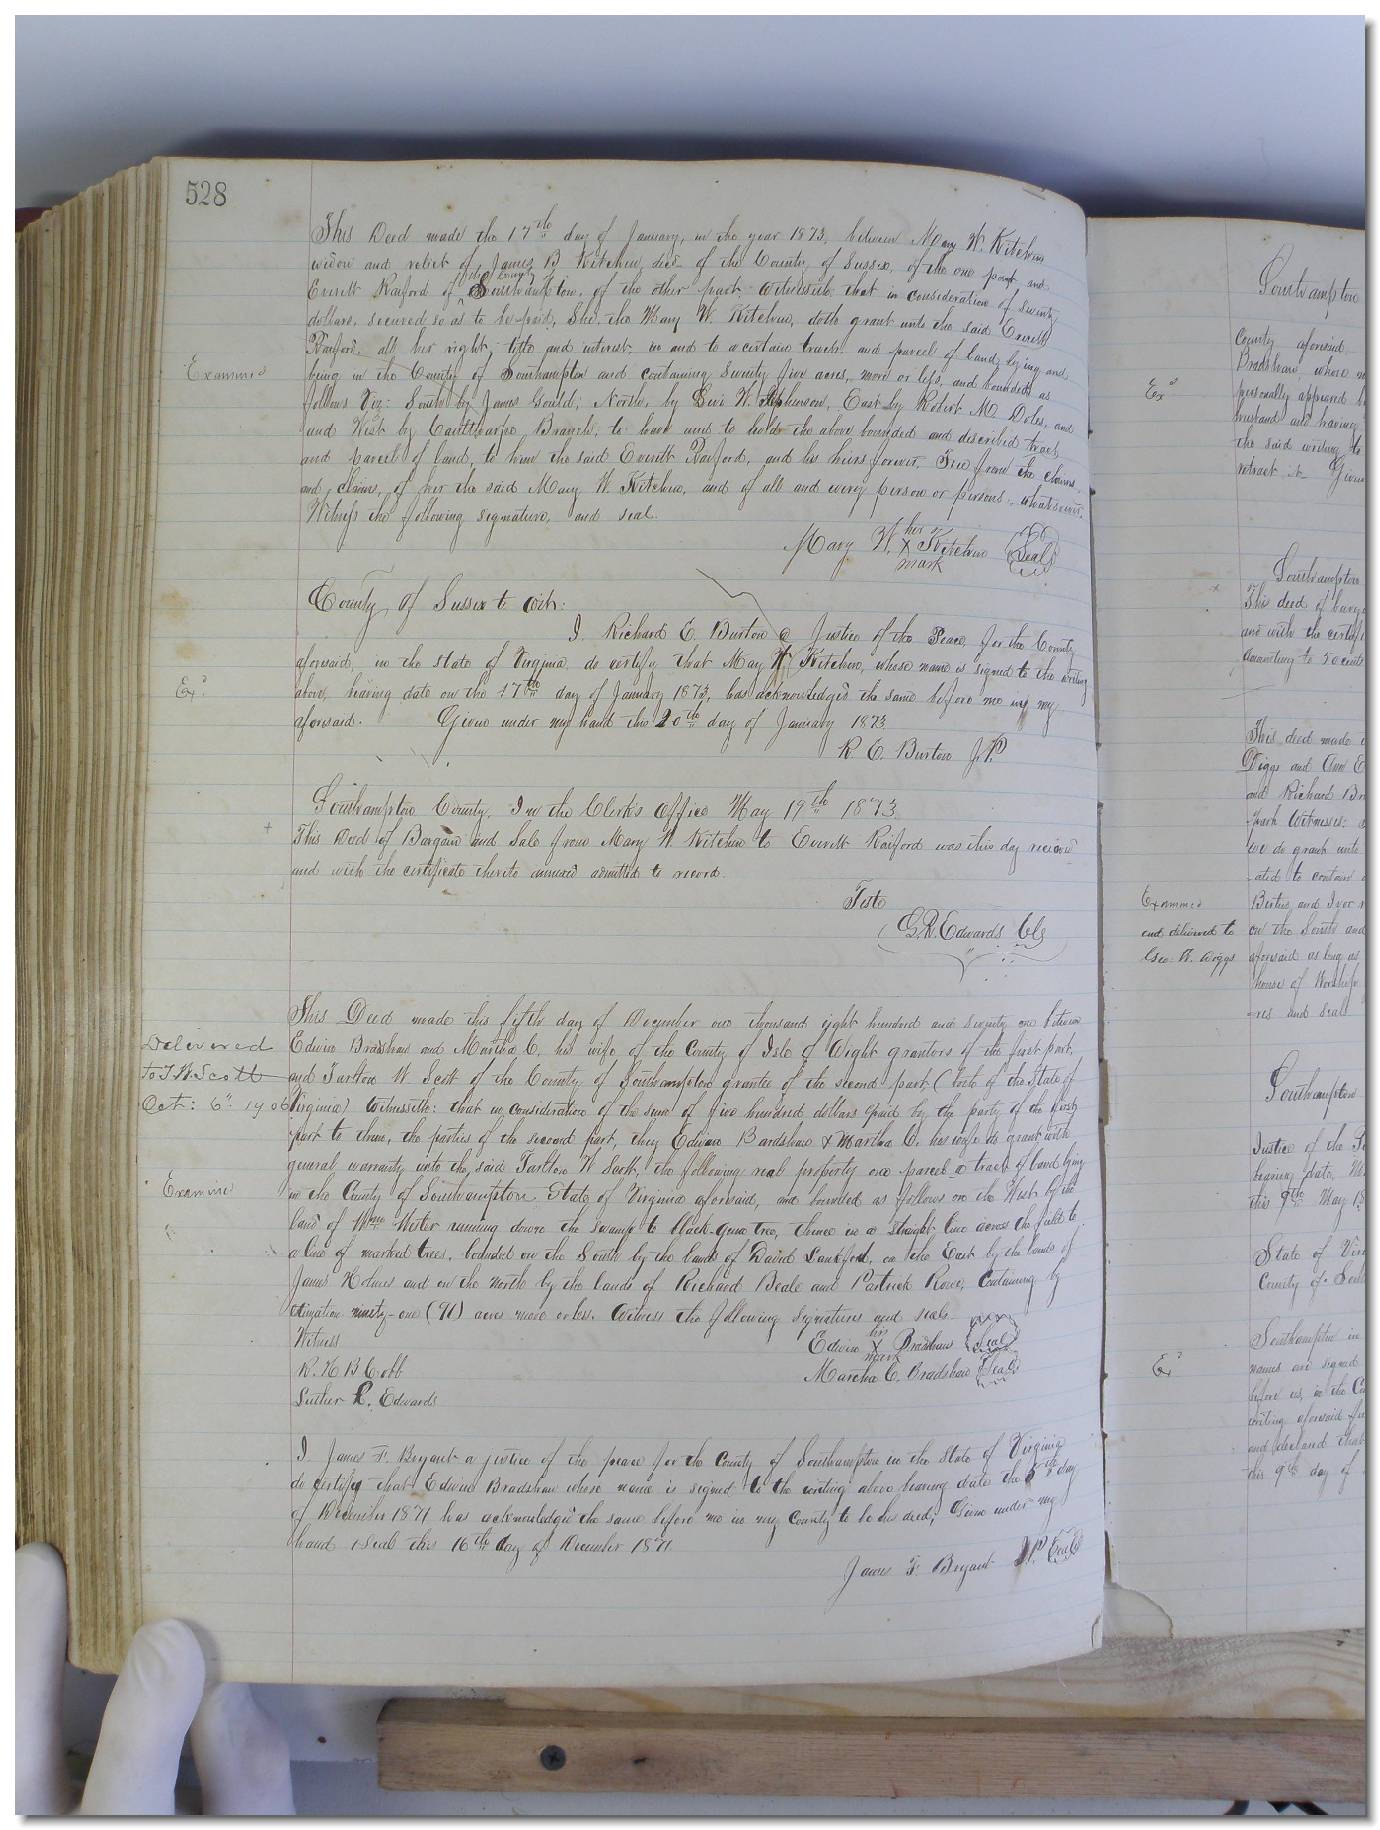 528
This Deed made the 17th day of January, in the year 1873, between Mary W. Kitchen
widow and relict of James B Kitchen, decd of the County of Sussex, of the one part and
Everett Raiford of the County Southampton, of the other part, Witnesseth that in consideration of seventy
dollars, secured so as to be paid, She, the Mary W. Kitchen, doth grant unto the said Everett
Raiford, all her right, title and interest, in and to a certain tract and parcel of land, lying and
Examined
being in the County of Southampton and containing Seventy five acres, more or less, and bounded as
follows Viz: South by James Gould, North, by Levi W. Stephenson, East by Robert M Doles, and
and West by Branch, to have and to hold the above bounded and discribed tract
and parcel of land, to him the said Everett Raiford, and his heirs forever, Free from the claims
and claim, of her the said Mary W. Kitchen, and of all and every person or persons, whatsoever.
Witness the following signature, and seal.
her
Mary W. X Kitchen Seal
mark
County of Sussex to wit:
I Richard E. Burton a Justice of the Peace, for the County
aforesaid, in the state of Virginia, do certify that Mary W. Kitchen, whose name is signed to the writing
Exd
above, having date on the 17th day of January 1873, has acknowledged the same before me in my
aforesaid. Given under my hand this 20th day of January 1873.
R. E. Burton J.P.
Southampton County, In the Clerks Office May 19th 1873
This Deed of Bargain and Sale from Mary W. Kitchen to Everett Raiford was this day received
and with the certificate thereto annexed admitted to record.
Teste
G.R. Edwards Clk
This Deed made this fifth day of December one thousand eight hundred and seventy one between
Delivered
Edwin Bradshaw and Martha C. his wife of the County of Isle of Wight grantors of the first part,
to T.W. Scott
and Tarlton W Scott of the County of Southampton grantee of the second part, (both of the State of
Oct: 6" 1906
Virginia) Witnesseth: that in consideration of the sum of five hundred dollars paid by the party of the first
part to them, the parties of the second part, they Edwin Bardshaw & Martha C. his wife do grant with
general warranty unto the said Tarlton W Scott, the following real property one parcel or tract of land lying
Examine
in the County of Southampton State of Virginia aforesaid, and bounded as follows on the West by the
land of Wm Wister running down the swamp to black-gum tree, thence in a straight line across the field to
a line of marked trees, bounded on the South by the land of David Lankford, on the East by the lands of
James Holmes and on the North by the lands of Richard Beale and Patrick Rowe, Containing by
estimation ninety-one (91) acres more or less. Witness the following signatures and seals.
Witness
his
Edwin X Bradshaw Seal
mark
R. H B Cobb
Martha C. Bradshaw Seal
Luther R. Edwards
I James F. Bryant a justice of the peace for the County of Southampton in the State of Virginia
do certify that Edwin Bradshaw whose name is signed to the writing above bearing date the 5th day
of December 1871 has acknowledged the same before me in my County to be his deed, Given under my
hand & Seal this 16th day of December 1871
James F. Bryant J.P. Seal
Southampton
County aforesaid
Bradshaw, whose
Exd
personally appeared
husband and having
the said writing
retract it Given
Southampton
This deed of
and with the certif
amounting to 50 cents
This deed made
Diggs and Ann E
and Richard
part Witnesses:
do grant unto
ated to contain
Examined
and Ivor
and delivered to
on the South and
Geo. W. Diggs
aforesaid as long as
house of Worship
res and seals
Southampton
Justice of the
bearing date,
this 9th May
State of Vir
County of South
Southampton in
Exd
names are signed
before us, in the Co
writing aforesaid
and declared that
this 9th day of